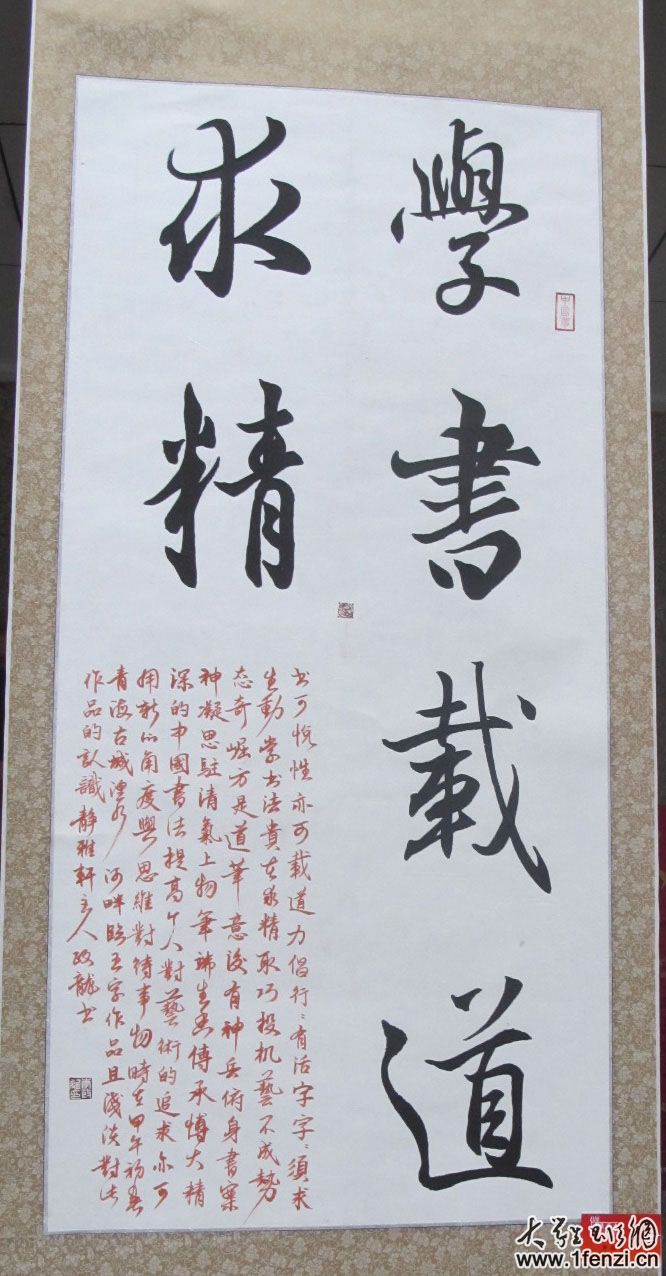 學書載道
求精
书可悦性亦可载道力倡行〻有活字字〻須求
生動学书法貴在求精取巧投机藝不成勢
态奇崛方是道筆意後有神兵俯身書案
神凝思駐清氣上物筆端生香傳承博大精
深的中國書法提高个人對藝術的追求亦可
用新的角度與思維對待事物時在甲午初春
青海古城湟水河畔臨王字作品且淺淡對此
作品的認識靜雅軒主人政龍书
大学生书法網
www.1fenzi.cn